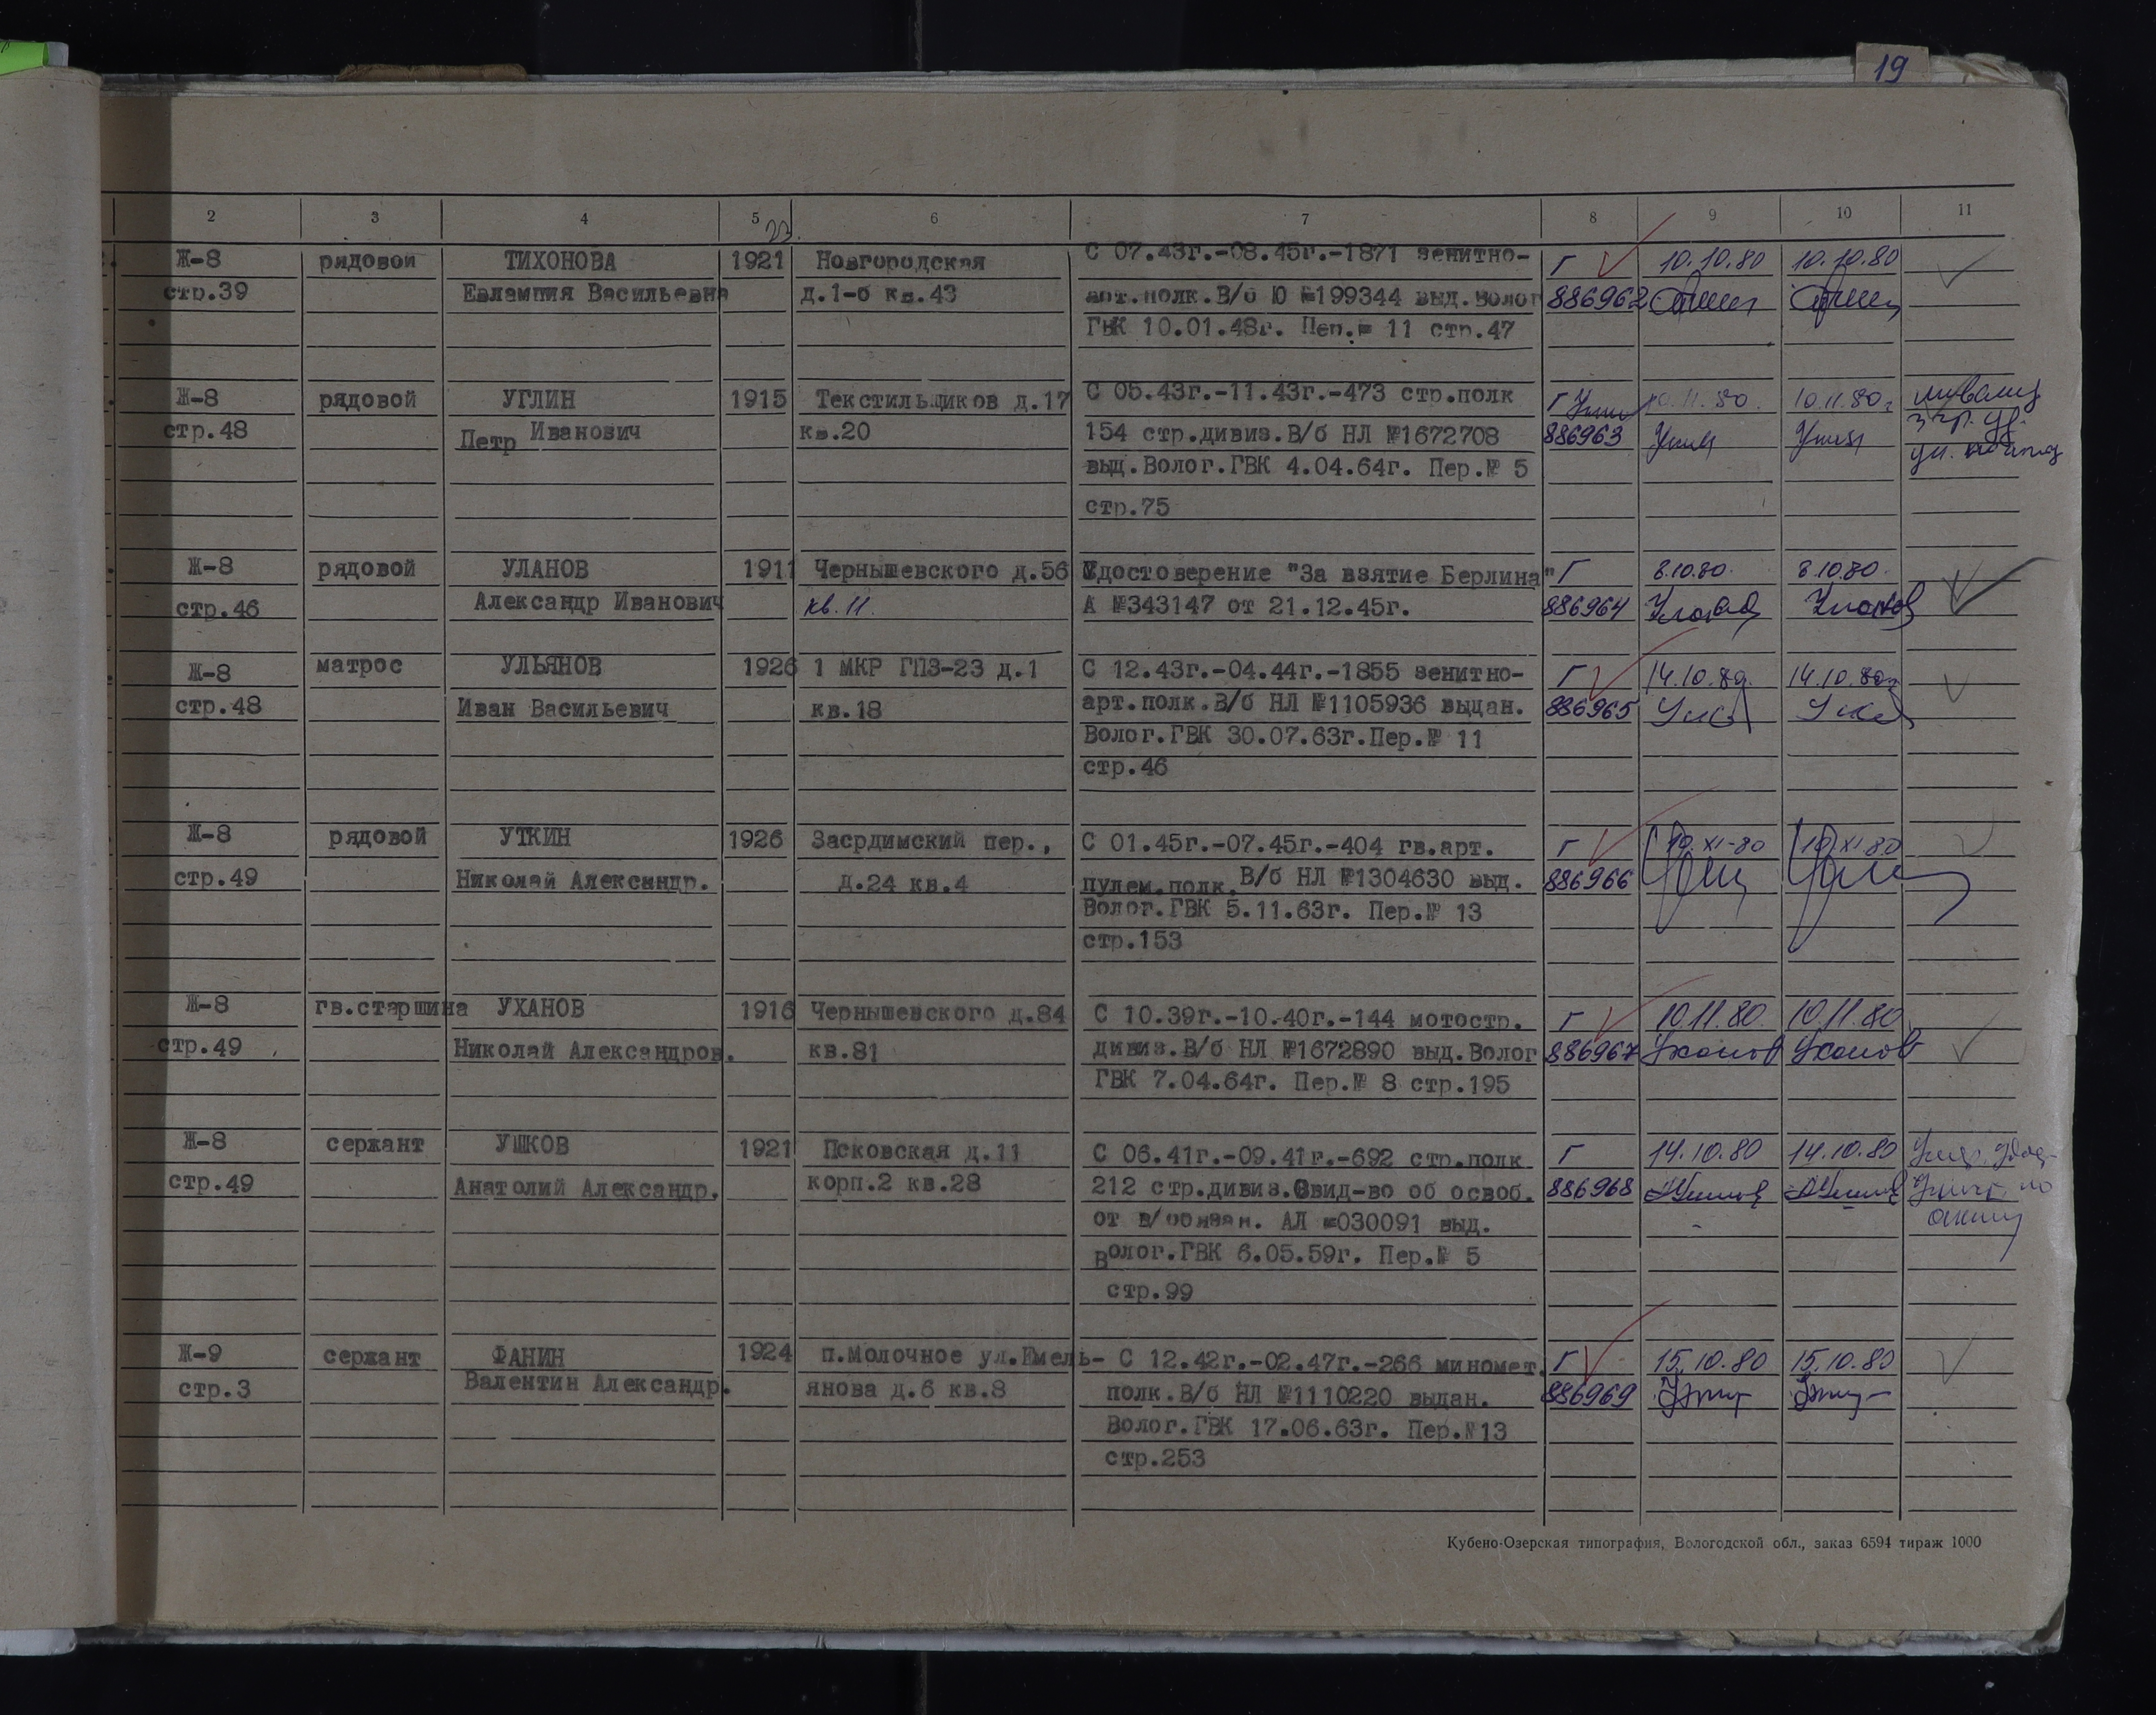 19
2 3 4 5 6 7 8 9 10 11
23.
Ж-8 рядовой ТИХОНОВА 1921 Новгородская С 07.43г.-08.45г.-1871 зенитно- Г 10.10.80 10.10.80
стр.39 Евлампия Васильевна д.1-б кв.43 арт.полк.В/б Ю №199344 выд.Волог 886962
ГВК 10.01.48г. Пер.№ 11 стр.47
Ж-8 рядовой УГЛИН 1915 Текстильщиков д.17 С 05.43г.-11.43г.-473 стр.полк Г 10.11.80. 10.11.80г
стр.48 Петр Иванович кв.20 154 стр.дивиз.В/б НЛ №1672708 886963
выд.Волог.ГВК 4.04.64г. Пер.№ 5
стр.75
Ж-8 рядовой УЛАНОВ 1911 Чернышевского д.56 Удостоверение "За взятие Берлина" Г 8.10.80. 8.10.80
стр.46 Александр Иванович кв.11. А №343147 от 21.12.45г. 886964 Уланов
Ж-8 матрос УЛЬЯНОВ 1926 1 МКР ГПЗ-23 д.1 С 12.43г.-04.44г.-1855 зенитно- Г 14.10.80. 14.10.80г
стр.48 Иван Васильевич кв.18 арт.полк.В/б НЛ №1105936 выдан. 886965
Волог.ГВК 30.07.63г.Пер.№ 11
стр.46
Ж-8 рядовой УТКИН 1926 Засрдимский пер., С 01.45г.-07.45г.-404 гв.арт. Г 10.XI-80 10.XI.80
стр.49 Николай Александр. д.24 кв.4 пулем.полк.В/б НЛ №1304630 выд. 886966
Волог.ГВК 5.11.63г. Пер.№ 13
стр.153
Ж-8 гв.старшина УХАНОВ 1916 Чернышевского д.84 С 10.39г.-10.40г.-144 мотостр. Г 10.11.80. 10.11.80
стр.49 Николай Александров. кв.81 дивиз.В/б НЛ №1672890 выд.Волог 886967 Уханов Уханов
ГВК 7.04.64г. Пер.№ 8 стр.195
Ж-8 сержант УШКОВ 1921 Псковская д.11 С 06.41г.-09.41г.-692 стр.полк Г 14.10.80 14.10.80
стр.49 Анатолий Александр. корп.2 кв.28 212 стр.дивиз.Свид-во об освоб. 886968
от в/обязан. АЛ №030091 выд.
Волог.ГВК 6.05.59г. Пер.№ 5
стр.99
Ж-9 сержант ФАНИН 1924 п.Молочное ул.Емель- С 12.42г.-02.47г.-266 миномет. Г 15.10.80 15.10.80
стр.3 Валентин Александр. янова д.6 кв.8 полк.В/б НЛ №1110220 выдан. 886969
Волог.ГВК 17.06.63г. Пер.№13
стр.253
Кубено-Озерская типография, Вологодской обл., заказ 6594 тираж 1000